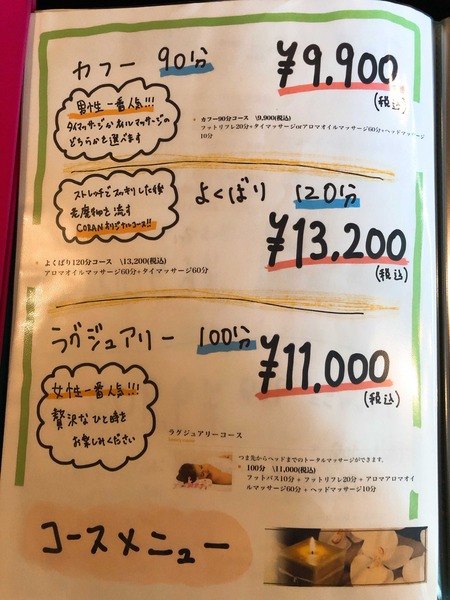 カフー 90分 ¥9,900
(税込)
男性一番人気!!!
タイマッサージかオイルマッサージの
どちらかを選べます
カフー90分コース \9,900(税込)
フットリフレ20分+タイマッサージorアロマオイルマッサージ60分+ヘッドマッサージ
10分
ストレッチでスッキリした後
老廃物を流す
CORANオリジナルコース!!
よくばり 120分
¥13,200
(税込)
よくばり120分コース \13,200(税込)
アロマオイルマッサージ60分+タイマッサージ60分
ラグジュアリー 100分
¥11,000
(税込)
女性一番人気!!!
贅沢なひと時を
お楽しみください
ラグジュアリーコース
つま先からヘッドまでのトータルマッサージができます。
100分 \11,000(税込)
フットバス10分+フットリフレ20分+アロマアロマオイ
ルマッサージ60分+ヘッドマッサージ10分
コースメニュー